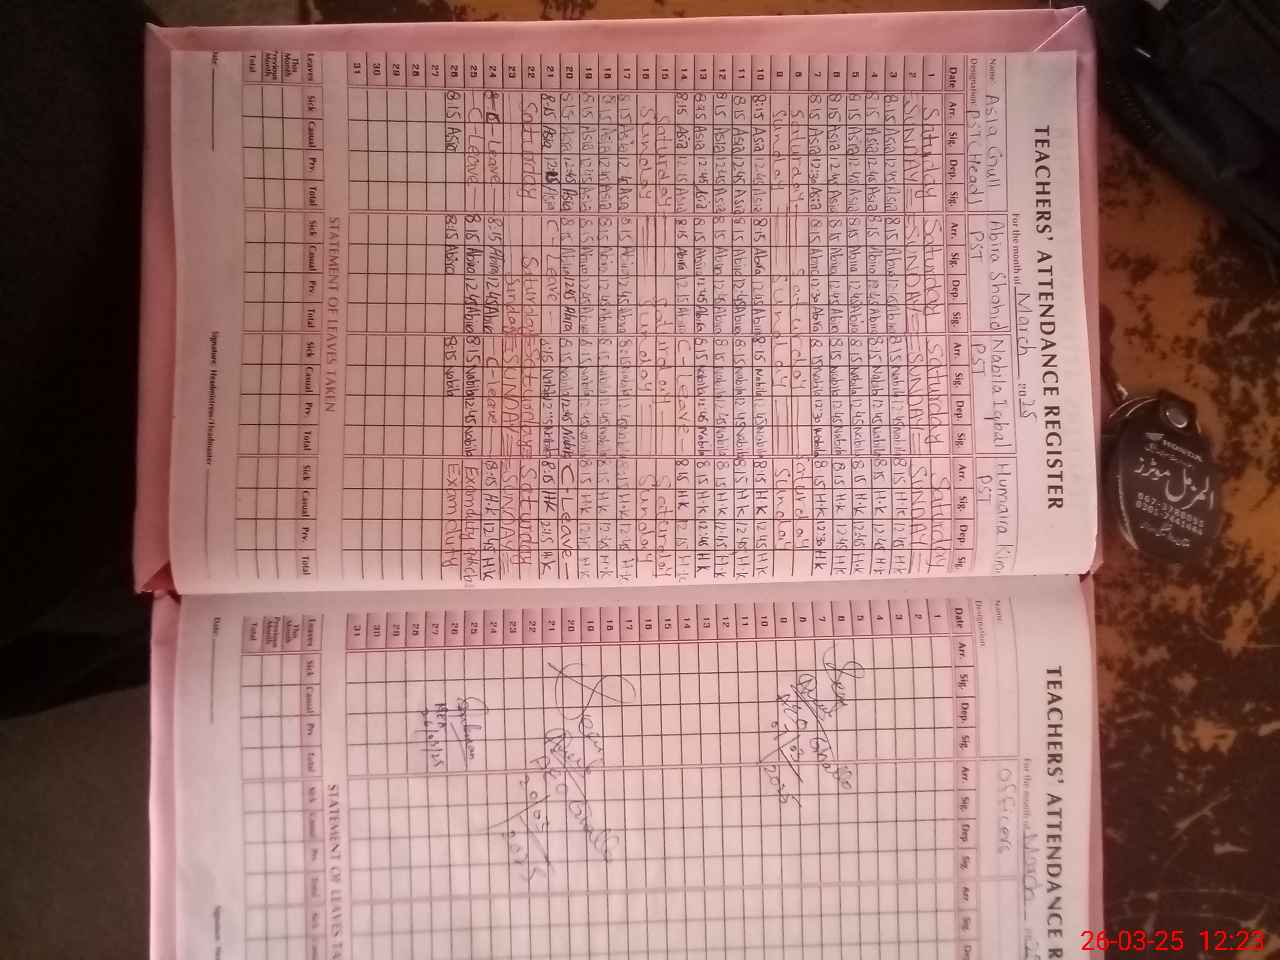 TEACHERS' ATTENDANCE REGISTER
For the month of March 2025
Name: Asia Gull Abira Shahid Nabila Iqbal Humaira
Designation: PST (Head) PST PST PST
Date Arr. Sig. Dep. Sig. Arr. Sig. Dep. Sig. Arr. Sig. Dep. Sig. Arr. Sig. Dep. Sig.
1 Saturday Saturday Saturday Saturday
2 SUNDAY SUNDAY SUNDAY SUNDAY
3 8:15 Asia 12:45 Asia 8:15 Abira 12:45 Abira 8:15 Nabila 12:45 Nabila 8:15 H.K 12:45 H.K
4 8:15 Asia 12:45 Asia 8:15 Abira 12:45 Abira 8:15 Nabila 12:45 Nabila 8:15 H.K 12:45 H.K
5 8:15 Asia 12:45 Asia 8:15 Abira 12:45 Abira 8:15 Nabila 12:45 Nabila 8:15 H.K 12:45 H.K
6 8:15 Asia 12:45 Asia 8:15 Abira 12:45 Abira 8:15 Nabila 12:45 Nabila 8:15 H.K 12:45 H.K
7 8:15 Asia 12:30 Asia 8:15 Abira 12:30 Abira 8:15 Nabila 12:30 Nabila 8:15 H.K 12:30 H.K
8 Saturday Saturday Saturday
9 Sunday Sunday Sunday
10 8:15 Asia 12:45 Asia 8:15 Abira 12:45 Abira 8:15 Nabila 12:45 Nabila 8:15 H.K 12:45 H.K
11 8:15 Asia 12:45 Asia 8:15 Abira 12:45 Abira 8:15 Nabila 12:45 Nabila 8:15 H.K 12:45 H.K
12 8:15 Asia 12:45 Asia 8:15 Abira 12:45 Abira 8:15 Nabila 12:45 Nabila 8:15 H.K 12:45 H.K
13 8:15 Asia 12:45 Asia 8:15 Abira 12:45 Abira 8:15 Nabila 12:45 Nabila 8:15 H.K 12:45 H.K
14 8:15 Asia 12:15 Asia 8:15 Abira 12:15 Abira C-Leave 8:15 H.K 12:15 H.K
15 Saturday Saturday Saturday
16 Sunday Sunday Sunday
17 8:15 Asia 12:45 Asia 8:15 Abira 12:45 Abira 8:15 Nabila 12:45 Nabila 8:15 H.K 12:45 H.K
18 8:15 Asia 12:45 Asia 8:15 Abira 12:45 Abira 8:15 Nabila 12:45 Nabila 8:15 H.K 12:45 H.K
19 8:15 Asia 12:45 Asia 8:15 Abira 12:45 Abira 8:15 Nabila 12:45 Nabila 8:15 H.K 12:45 H.K
20 8:15 Asia 12:45 Asia 8:15 Abira 12:45 Abira 8:15 Nabila 12:45 Nabila C-Leave
21 8:15 Asia Asia C-Leave 8:15 Nabila 12:15 Nabila 8:15 H.K 12:15 H.K
22 Saturday Saturday Saturday Saturday
23 Sunday SUNDAY SUNDAY
24 Leave 8:15 Abira 12:45 Abira C-Leave 8:15 H.K 12:45 H.K
25 C-Leave 8:15 Abira 12:45 Abira 8:15 Nabila 12:45 Nabila Exam duty
26 8:15 Asia 8:15 Abira 8:15 Nabila Exam duty
27
28
29
30
31
STATEMENT OF LEAVES TAKEN
Leaves Sick Casual Prv. Total Sick Casual Prv. Total Sick Casual Prv. Total Sick Casual Prv. Total
This Month
Previous Month
Total
Date: Signature: Headmistress/Headmaster
TEACHERS' ATTENDANCE R
For the month of March
Name: Officers
Designation:
Date Arr. Sig. Dep. Sig. Arr. Sig. Dep. Sig. Arr. Sig. Dep.
1
2
3
4
5
6
7
8
9
10
11
12
13
14
15
16
17
18
19
20
21
22
23
24
25
26
27
28
29
30
31
Seen
07/03/2025
Seen
20/03/2025
26/03/25
STATEMENT OF LEAVES TA
Leaves Sick Casual Prv. Total Sick Casual Prv. Total Sick
This Month
Previous Month
Total
Date: Signature:
HONDA
المزمل موٹرز
26-03-25 12:23